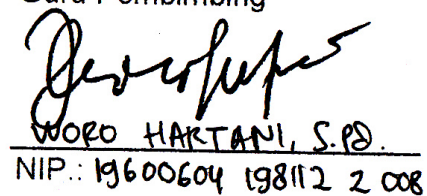 Guru Pembimbing
WORO HARTANI, S.Pd.
NIP.: 19600604 198112 2 008